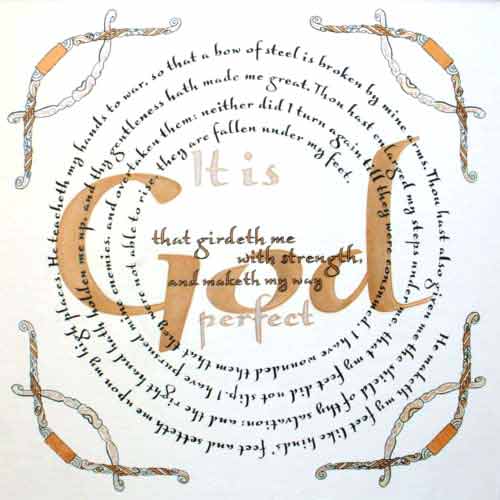 It is
God
that girdeth me
with strength,
and maketh my way
perfect
He maketh my feet like hinds' feet and setteth me upon my high places. He teacheth my hands to war, so that a bow of steel is broken by mine arms. Thou hast also given me the shield of thy salvation: and the right hand hath holden me up, and thy gentleness hath made me great. Thou hast enlarged my steps under me, that my feet did not slip. I have pursued mine enemies, and overtaken them: neither did I turn again till they were consumed. I have wounded them that they were not able to rise: they are fallen under my feet.